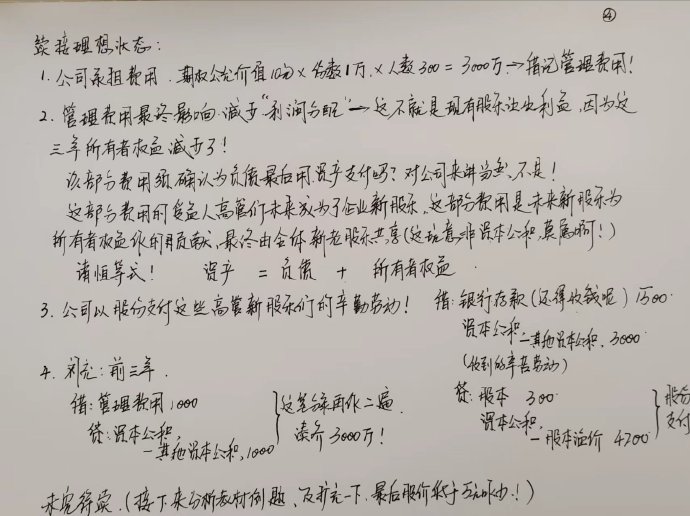 ④
续接理想状态：
1. 公司承担费用．期权公允价值10元×份数1万×人数300=3000万→借记管理费用！
2. 管理费用最终影响．减少"利润分配"→这不就是现有股东让出利益，因为这
三年所有者权益减少了！
该部分费用须确认为负债最后用资产支付吗？对公司来讲当然不是！
这部分费用的受益人高管们未来成为了企业新股东，这部分费用是未来新股东为
所有者权益作的贡献，最终由全体新老股东共享（这玩意非资本公积，莫属啊！）
请恒等式！ 资产 = 负债 + 所有者权益
3. 公司以股份支付这些高管新股东们的辛勤劳动！
借：银行存款（还得收钱呢）1500
资本公积—其他资本公积．3000
（收到的辛苦劳动）
贷：股本 300
资本公积，—股本溢价 4200
股份
支付
4. 补充：前三年．
借：管理费用1000
贷：资本公积，
—其他资本公积，1000
这笔分录再作二遍．
凑齐3000万！
未完待续．（接下来分析教材例题，及扩充一下，最后股价低于5元咋办！）